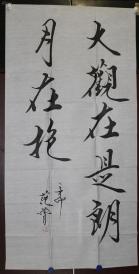 大觀在是朗
月在抱